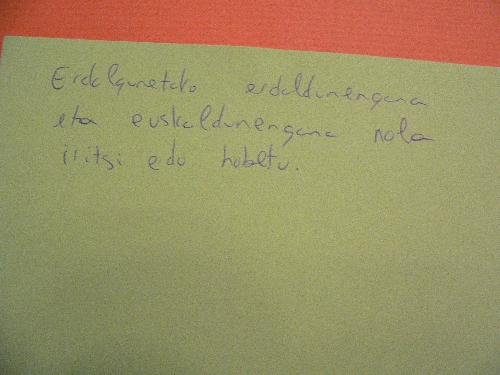 Erdalgunetako erdaldunengana
eta euskaldunengana nola
iritsi edo hobetu.